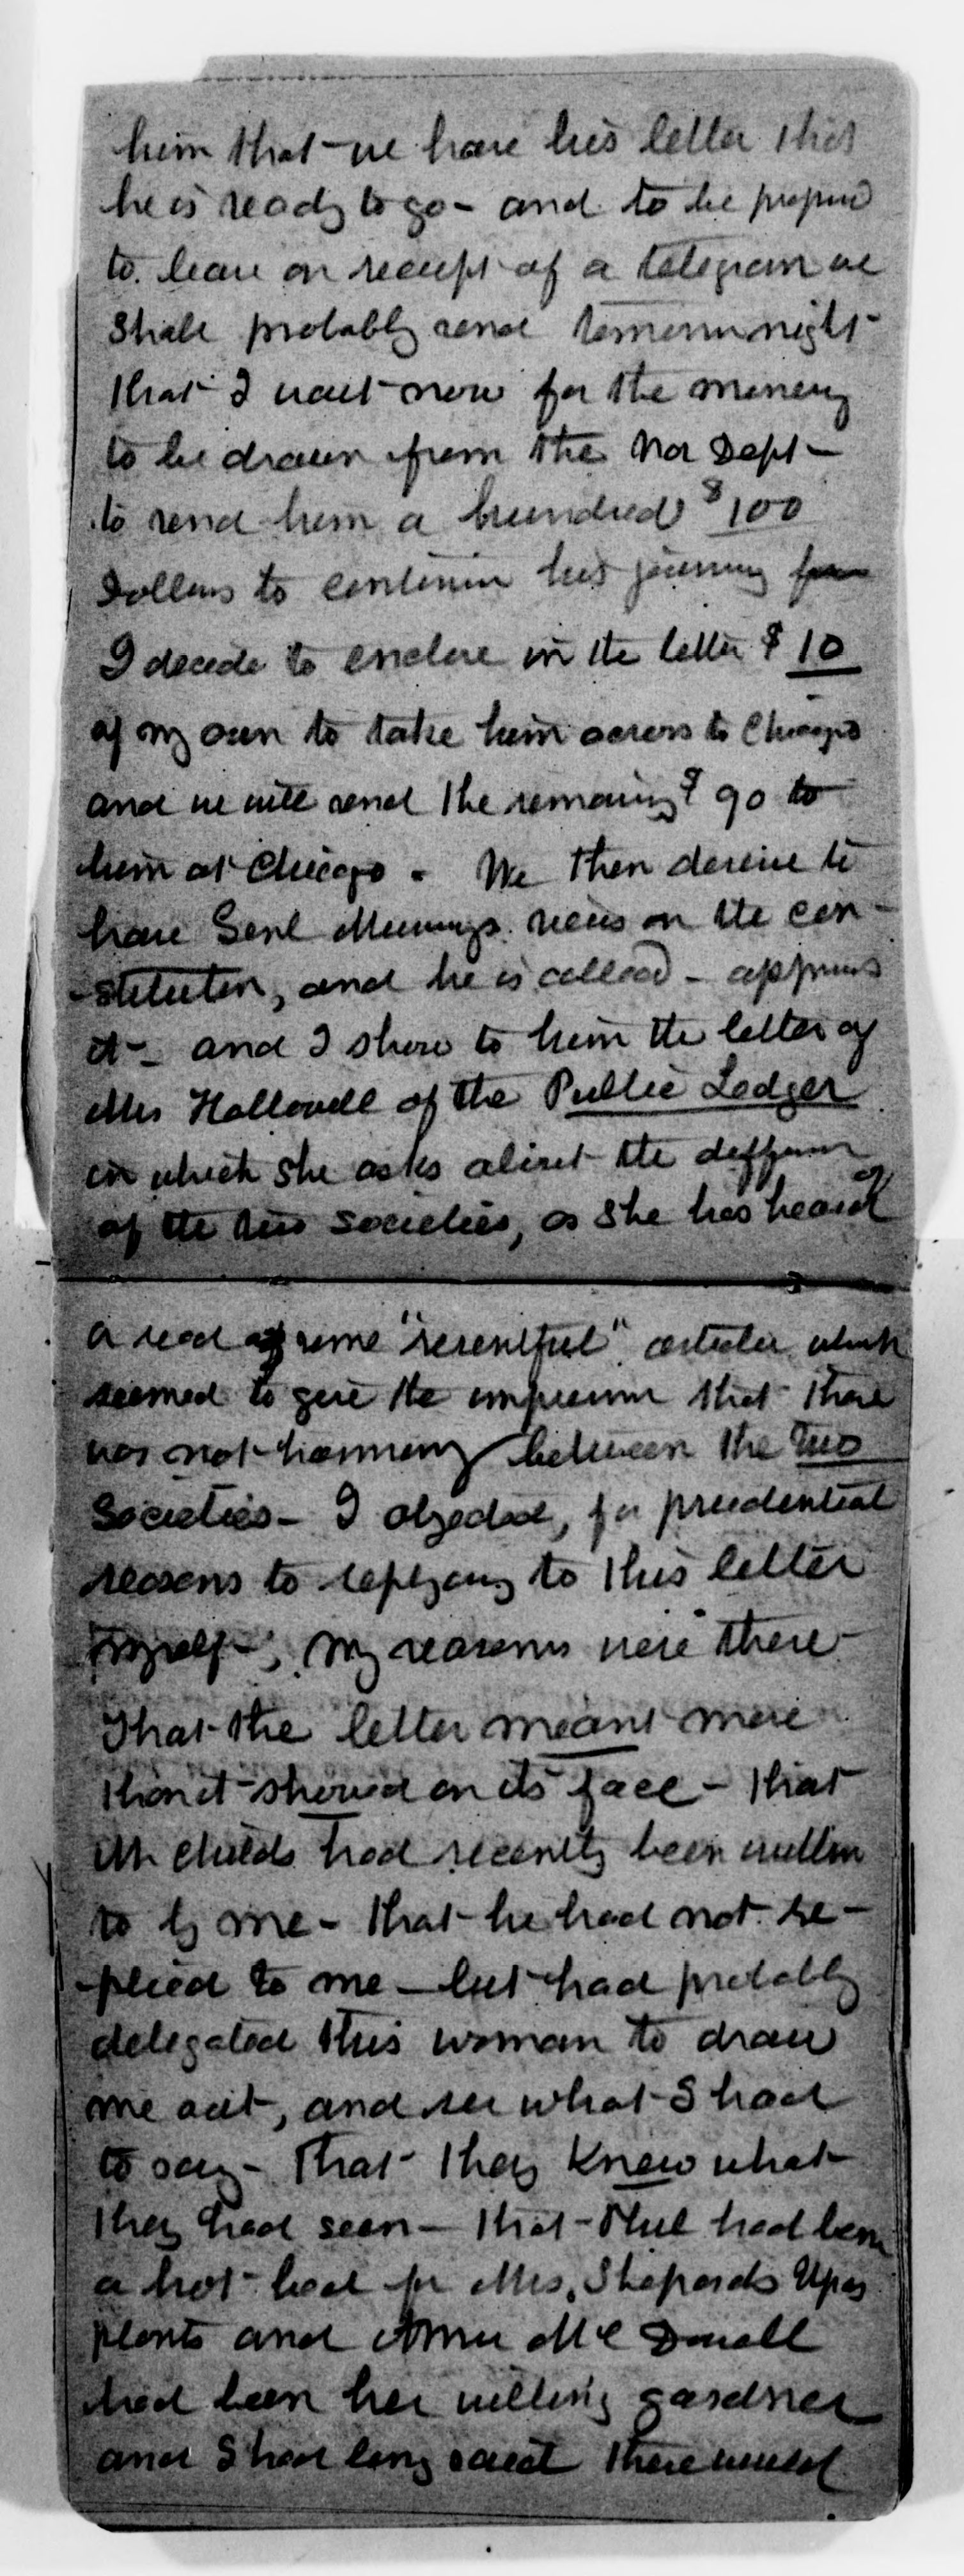 him that we have his letter that
he is ready to go - and to be prepared
to leave on receipt of a telegram we
shall probably send tomorrow night -
that I wait now for the money
to be drawn from the War Dept -
to send him a hundred $100
Dollars to continue his journey
I decide to enclose in the letter $10
of my own to take him across to Chicago
and we will send the remaining $90 to
him at Chicago. We then desire to
have Genl Musseys views on the con-
-stitution, and he is called - approves
it - and I show to him the letter of
Mrs Hallowell of the Public Ledger
in which she asks about the difference
of the two societies, as she has heard of
a read of some "resentful" articles which
seemed to give the impression that there
was not harmony between the two
Societies - I objected, for prudential
reasons to replying to this letter
myself -; My reasons were these -
That the letter meant more
than it showed on its face - that
Mr Childs had recently been written
to by me - that he had not re-
-plied to me - but had probably
delegated this woman to draw
me out, and see what I had
to say - That they knew what
they had seen - that Phil had been
a hot bed for Mrs. Shepards Upas
plants and Anna McDowell
had been her willing gardner
and I had long said there would